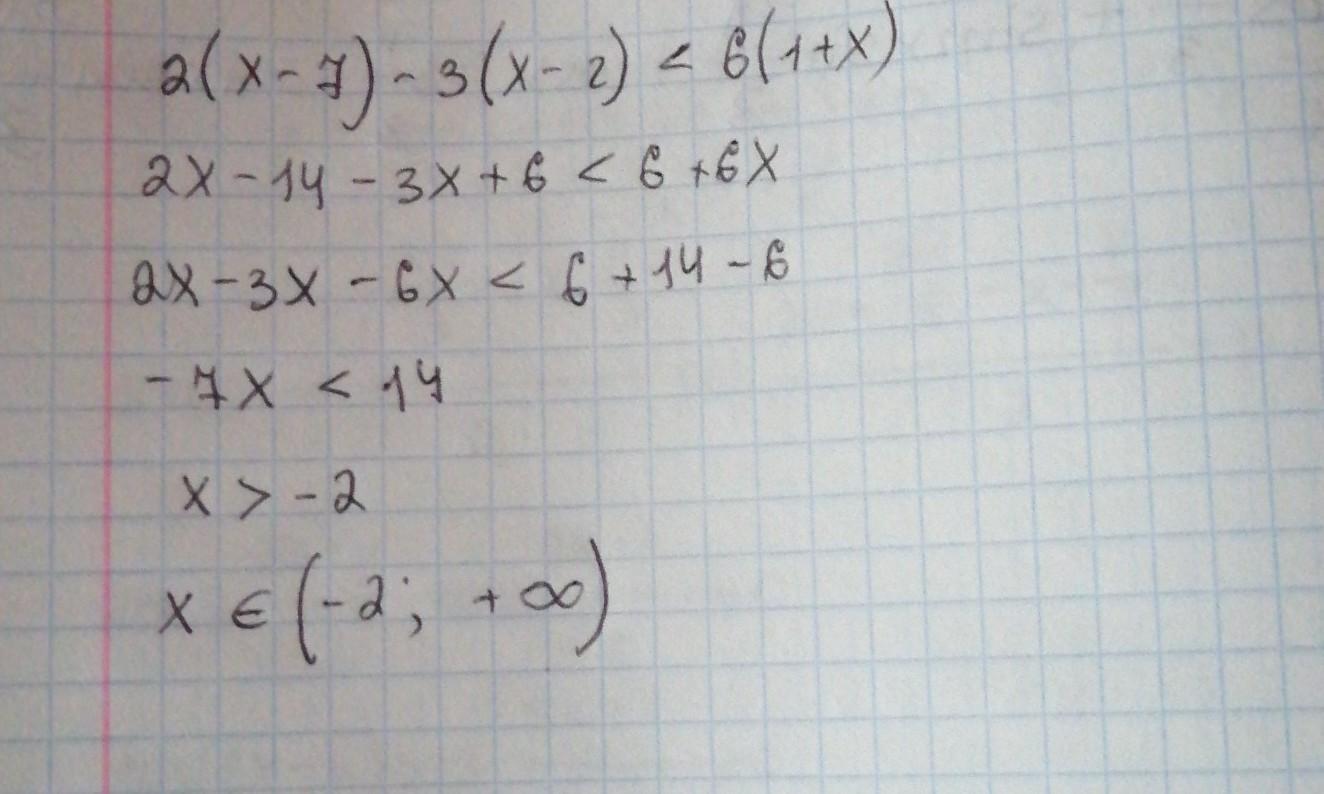 2(x-7)-3(x-2) < 6(1+x)
2x-14-3x+6 < 6+6x
2x-3x-6x < 6+14-6
-7x < 14
x > -2
x ∈ (-2; +∞)